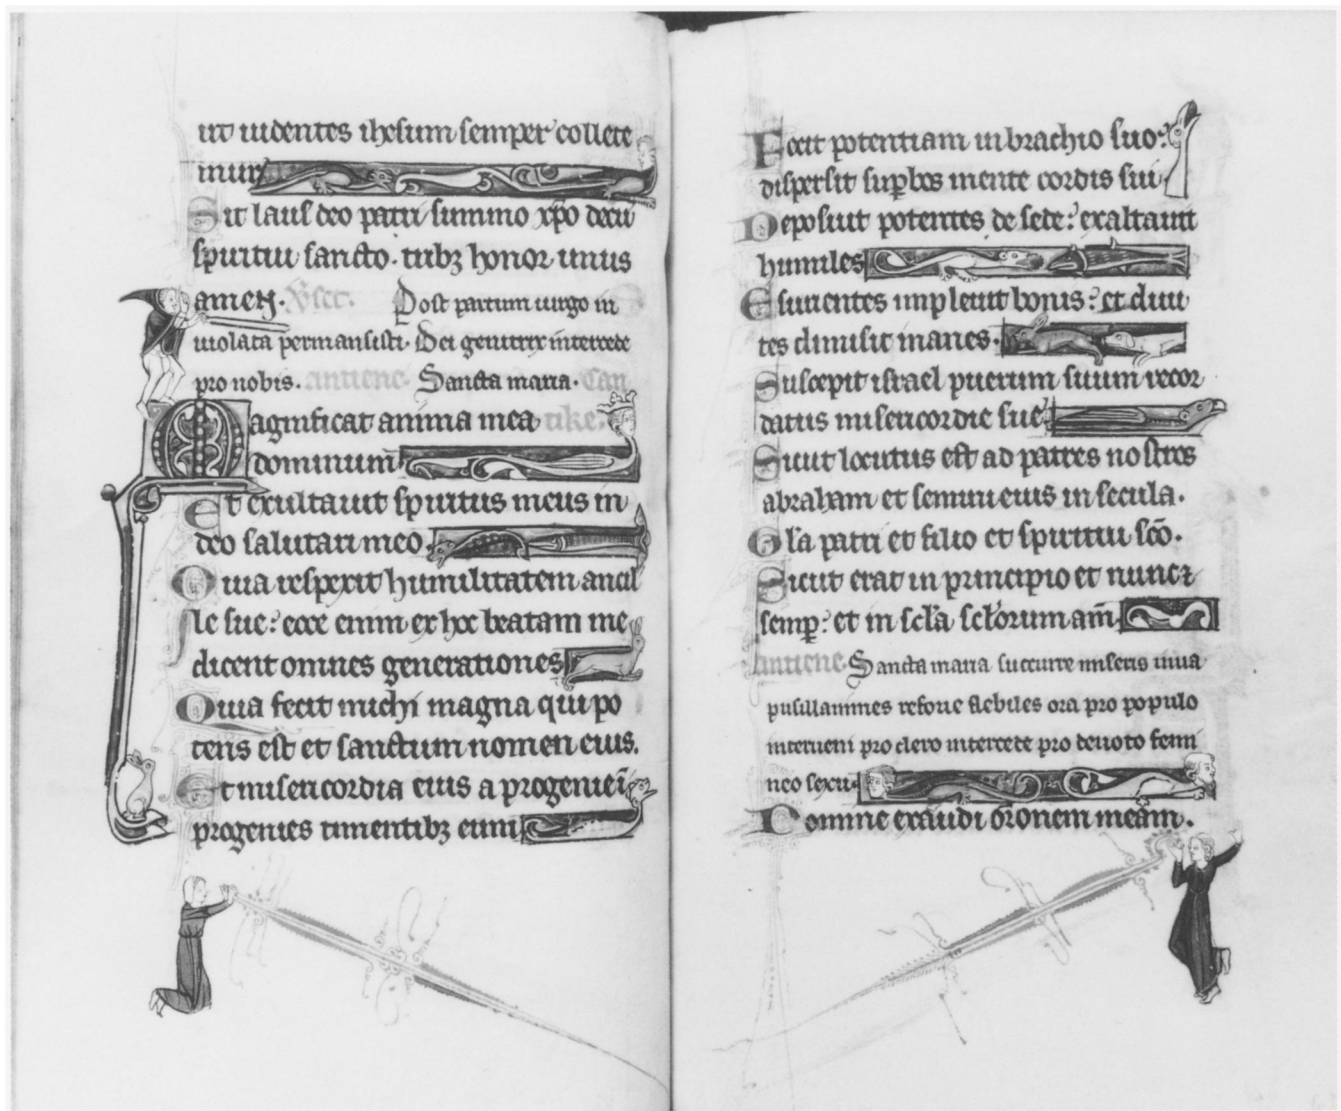 ut uidentes ihesum semper collete
mur
Sit laus deo patri summo xp̄o decꝰ
spiritui sancto. tribꝫ honor unus
amen. V̄s̄ct. Post partum uirgo in
uiolata permansisti. Dei genitrix intercede
pro nobis. antiene. Sancta maria. Can
Magnificat anima mea tike.
dominum
Et exultauit spiritus meus in
deo salutari meo.
Quia respexit humilitatem ancil
le sue: ecce enim ex hoc beatam me
dicent omnes generationes
Quia fecit michi magna qui po
tens est et sanctum nomen eius.
Et misericordia eius a progenie ī
progenies timentibꝫ eum
Fecit potentiam in brachio suo:
dispersit suꝑbos mente cordis sui
Deposuit potentes de sede: exaltauit
humiles
Esurientes impleuit bonis: et diui
tes dimisit inanes.
Suscepit israel puerum suum recor
datus misericordie sue
Sicut locutus est ad patres nostros
abraham et semini eius in secula.
Gl̄a patri et filio et spiritui sc̄o.
Sicut erat in principio et nunc ⁊
semꝑ: et in scl̄a scl̄orum am̄.
antiene. Sancta maria succurre miseris iuua
pusillanimes refoue flebiles ora pro populo
interueni pro clero intercede pro deuoto femi
neo sexu.
Domine exaudi ōronem meam.